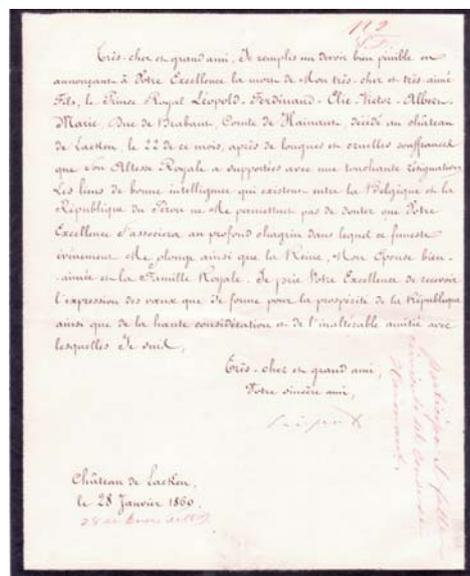 112
Très-cher et grand ami, Je remplis un devoir bien pénible en
annonçant à Votre Excellence la mort de Mon très-cher et très-aimé
Fils, le Prince Royal Léopold-Ferdinand-Elie-Victor-Albert-
Marie, Duc de Brabant, Comte de Hainaut, décédé au château
de Laeken, le 22 de ce mois, après de longues et cruelles souffrances
que Son Altesse Royale a supportées avec une touchante résignation.
Les liens de bonne intelligence qui existent entre la Belgique et la
République du Pérou ne Me permettent pas de douter que Votre
Excellence s'associera au profond chagrin dans lequel ce funeste
événement Me plonge ainsi que la Reine, Mon Epouse bien-
aimée et la Famille Royale. Je prie Votre Excellence de recevoir
l'expression des vœux que Je forme pour la prospérité de la République
ainsi que de la haute considération et de l'inaltérable amitié avec
lesquelles Je suis,
Très-cher et grand ami,
Votre sincère ami,
Léopold
Château de Laeken,
le 28 Janvier 1869.
28 de Enero de